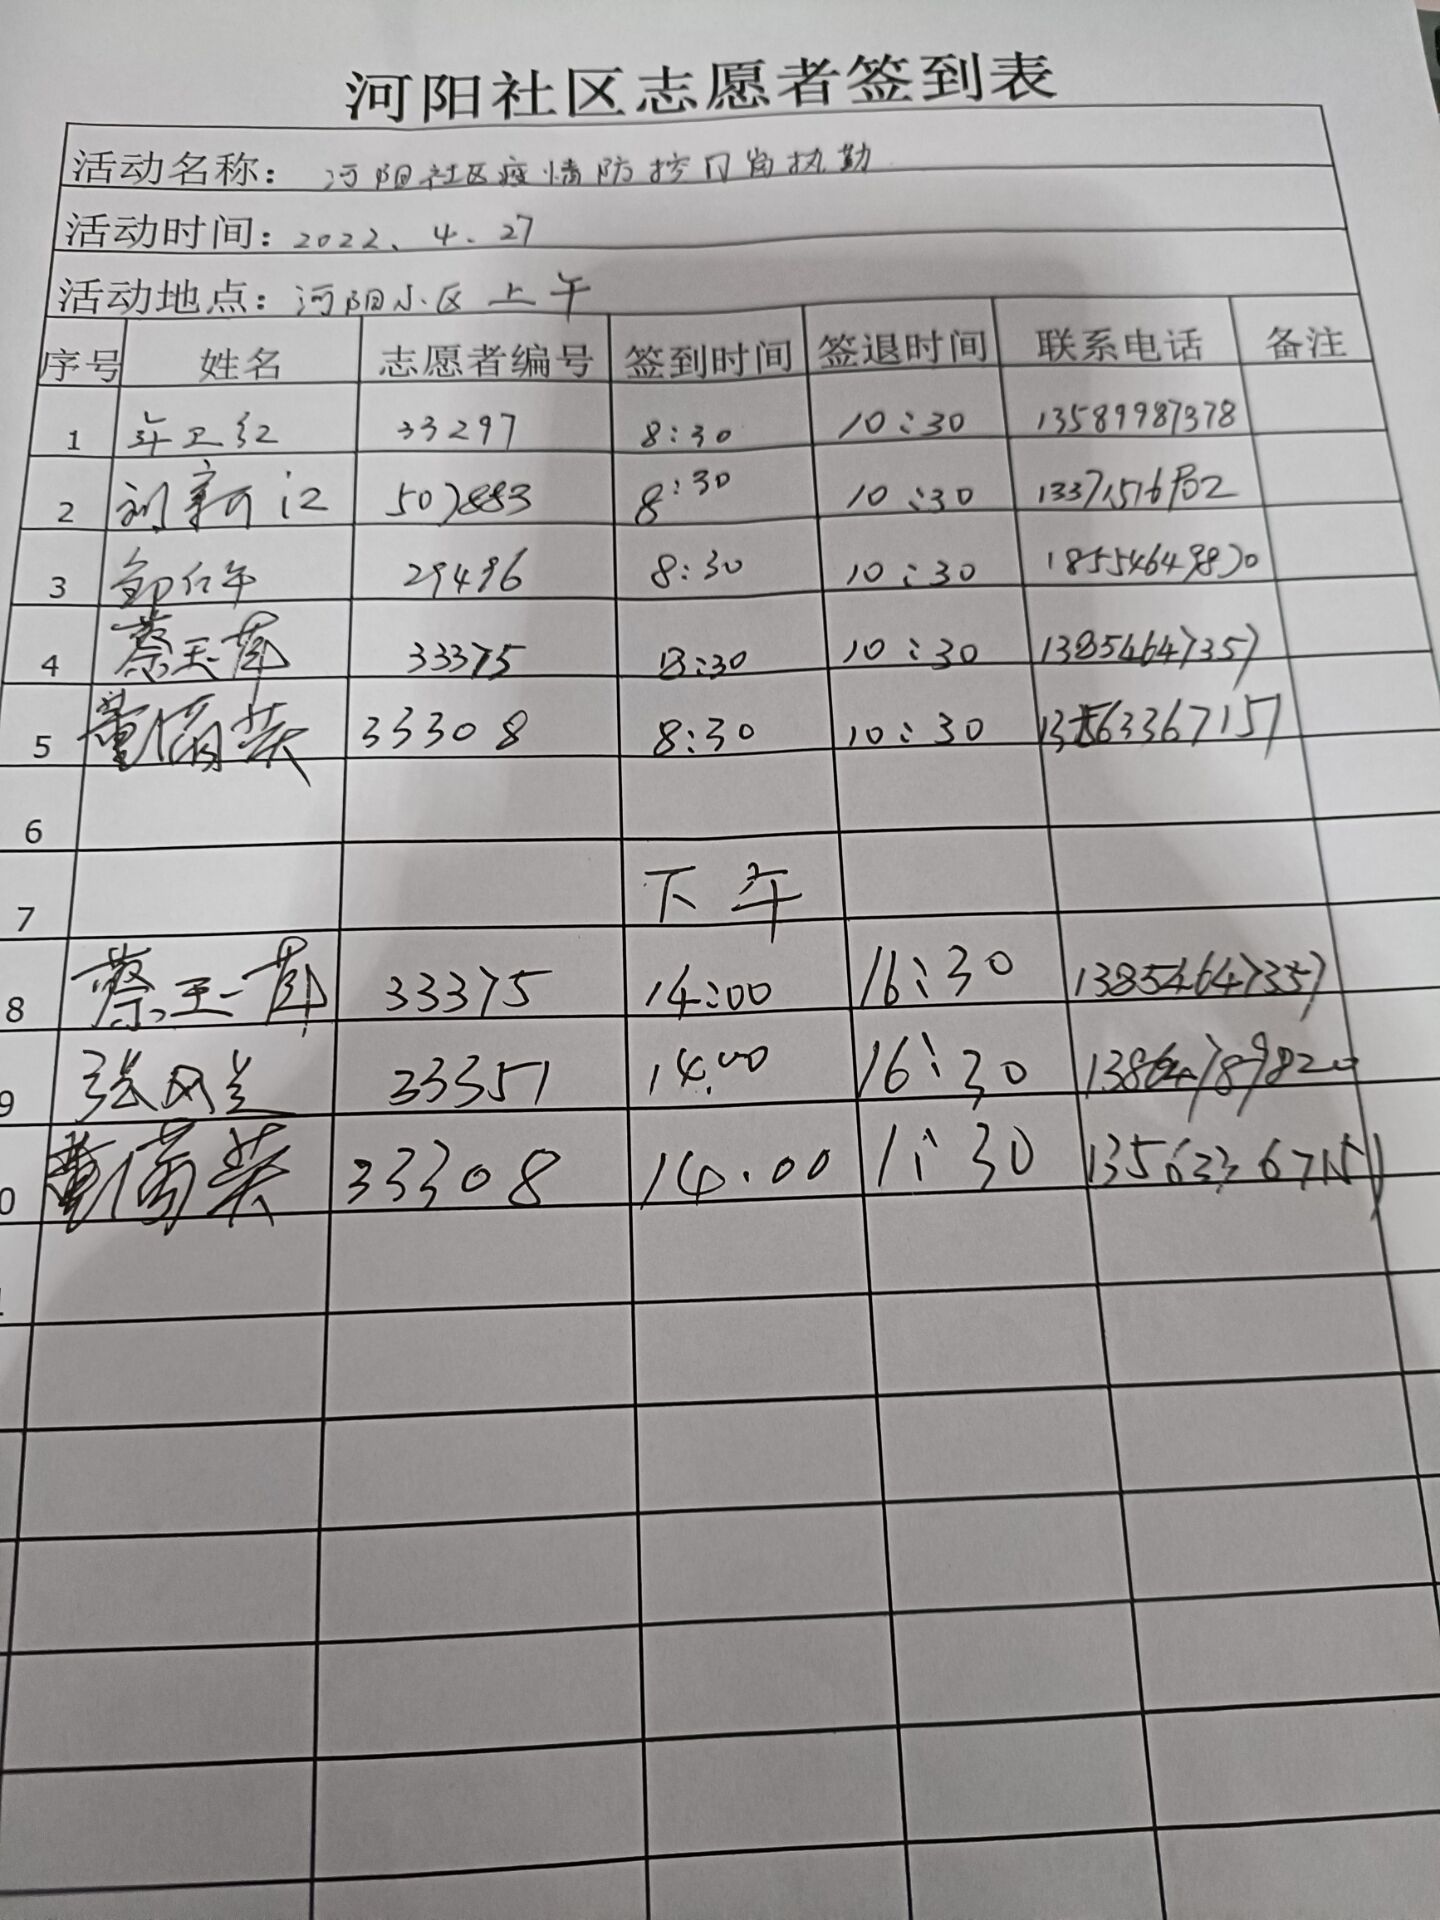 河阳社区志愿者签到表
活动名称：河阳社区疫情防控门岗执勤
活动时间：2022、4、27
活动地点：河阳小区 上午
序号 姓名 志愿者编号 签到时间 签退时间 联系电话 备注
1 年卫红 33297 8:30 10:30 13589987378
2 刘新江 507883 8:30 10:30
3 29496 8:30 10:30 18554649870
4 蔡玉菊 33375 8:30 10:30 13854647357
5 33308 8:30 10:30 13563367157
6
7 下午
8 蔡玉菊 33375 14:00 16:30 13854647357
9 张风兰 33351 14:00 16:30
0 33308 14.00 1:30 13563367157